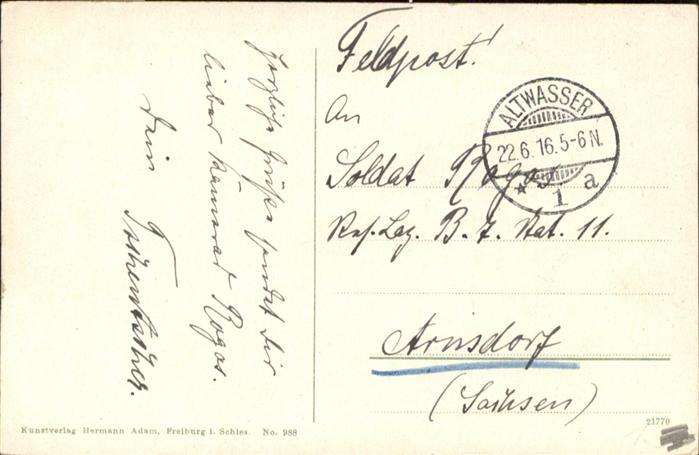 Herzliche Grüße sendet Dir
lieber Kamerad Rogos.
Dein
Feldpost!
An
Soldat Rogos
Res. Laz. B. 7. Stat. 11.
Arnsdorf
(Sachsen)
ALTWASSER
22.6.16.5-6N.
* 1 a
Kunstverlag Hermann Adam, Freiburg i. Schles. No. 988
21770